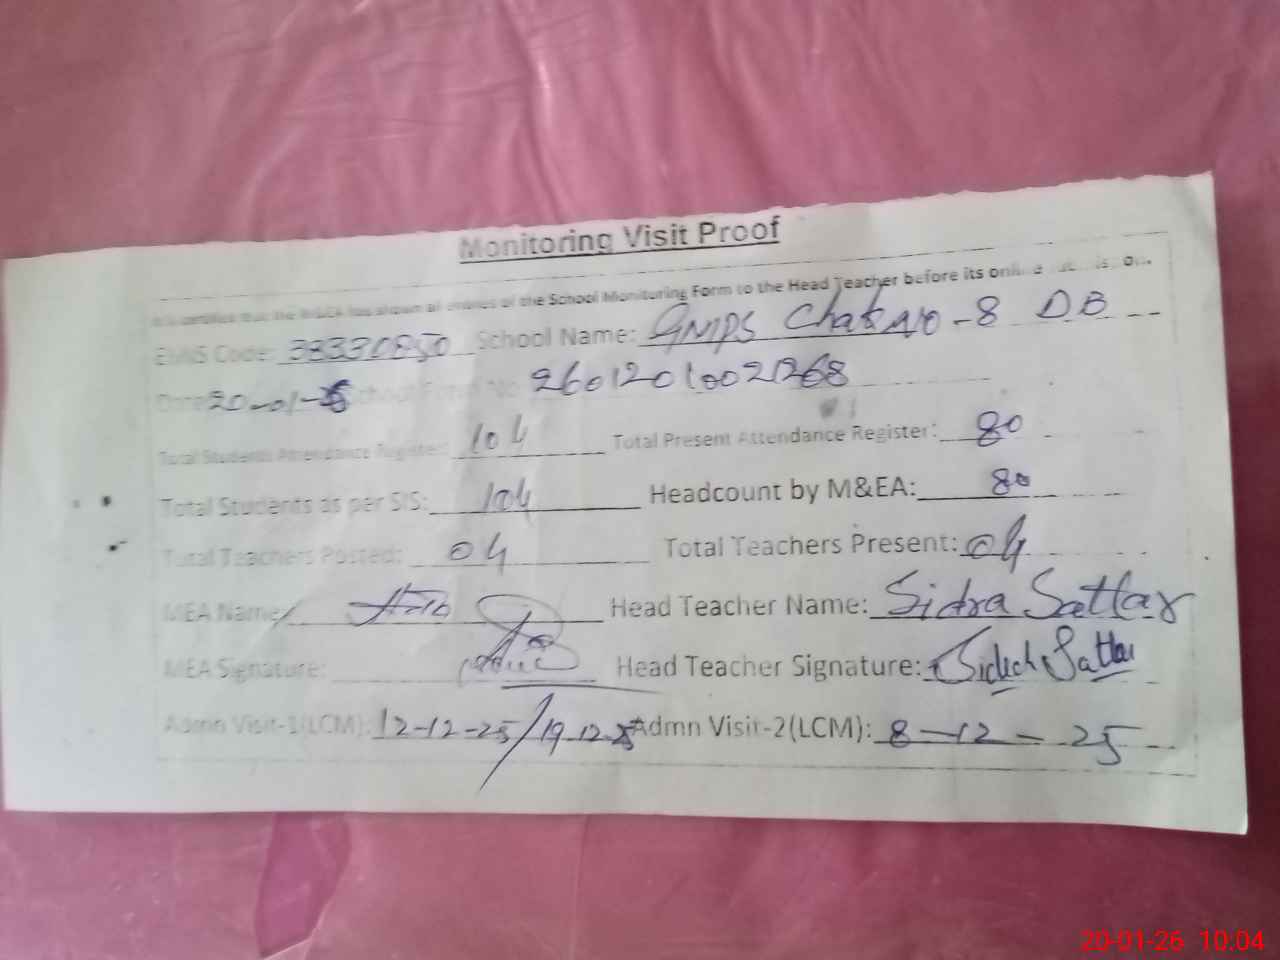 Monitoring Visit Proof
It is certified that the M&EA has shown all entries of the School Monitoring Form to the Head Teacher before its online
EMIS Code: 38330850 School Name: GMPS Chak No-8 DB
Date 20-01-26 School Form No
Total Students Attendance Register: 104 Total Present Attendance Register: 80
Total Students as per SIS: 104 Headcount by M&EA: 80
Total Teachers Posted: 04 Total Teachers Present: 04
MEA Name: Head Teacher Name: Sidra Sattar
MEA Signature: Head Teacher Signature: Sidrah Sattar
Admn Visit-1(LCM): 12-12-25/19-12-25 Admn Visit-2(LCM): 8-12-25
20-01-26 10:04